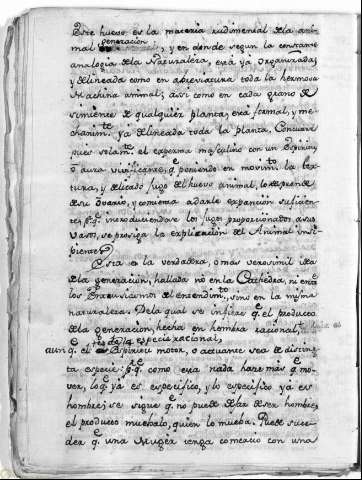 Este huevo es la materia rudimental de la ani-
mal generacion, y en donde segun la constante
analogia de la Naturaleza, está ya organizada,
y delineada como en abreviatura toda la hermosa
Machina animal; assi como en cada grano de
simiente de qualquier planta, está formal, y me-
chanimte. ya delineada toda la planta. Concurre
pues solamte. el esperma masculino con un Espiritu,
o aura vivificante, qe. poniendo en movimto. la tex-
tura, y delicado jugo del huevo animal, lo desprende
de su Ovario, y comienza a darle expansion suficien-
te, pa. qe. introduciendose los jugos proporcionados a sus
vasos, se prosiga la explicacion del Animal inci-
piente.
Esta es la verdadera, o mas verosimil idea
de la generacion, hallada no en la Cathedra, ni en
los Entusiasmos del entendimto., sino en la misma
naturaleza. De la qual se infiere qe. el producto
de la generacion, hecha en hembra racional,
es de la especie racional,
aunqe. el Espiritu motor, o actuante sea de distin-
ta especie: pr. qe. como este nada hace mas qe. mo-
ver, lo qe. ya es especifico, y lo especifico ya es
hombre; se sigue qe. no puede dexar de ser hombre
el producto muebalo, quien lo mueba. Puede suce-
der qe. una Muger tenga comercio con una